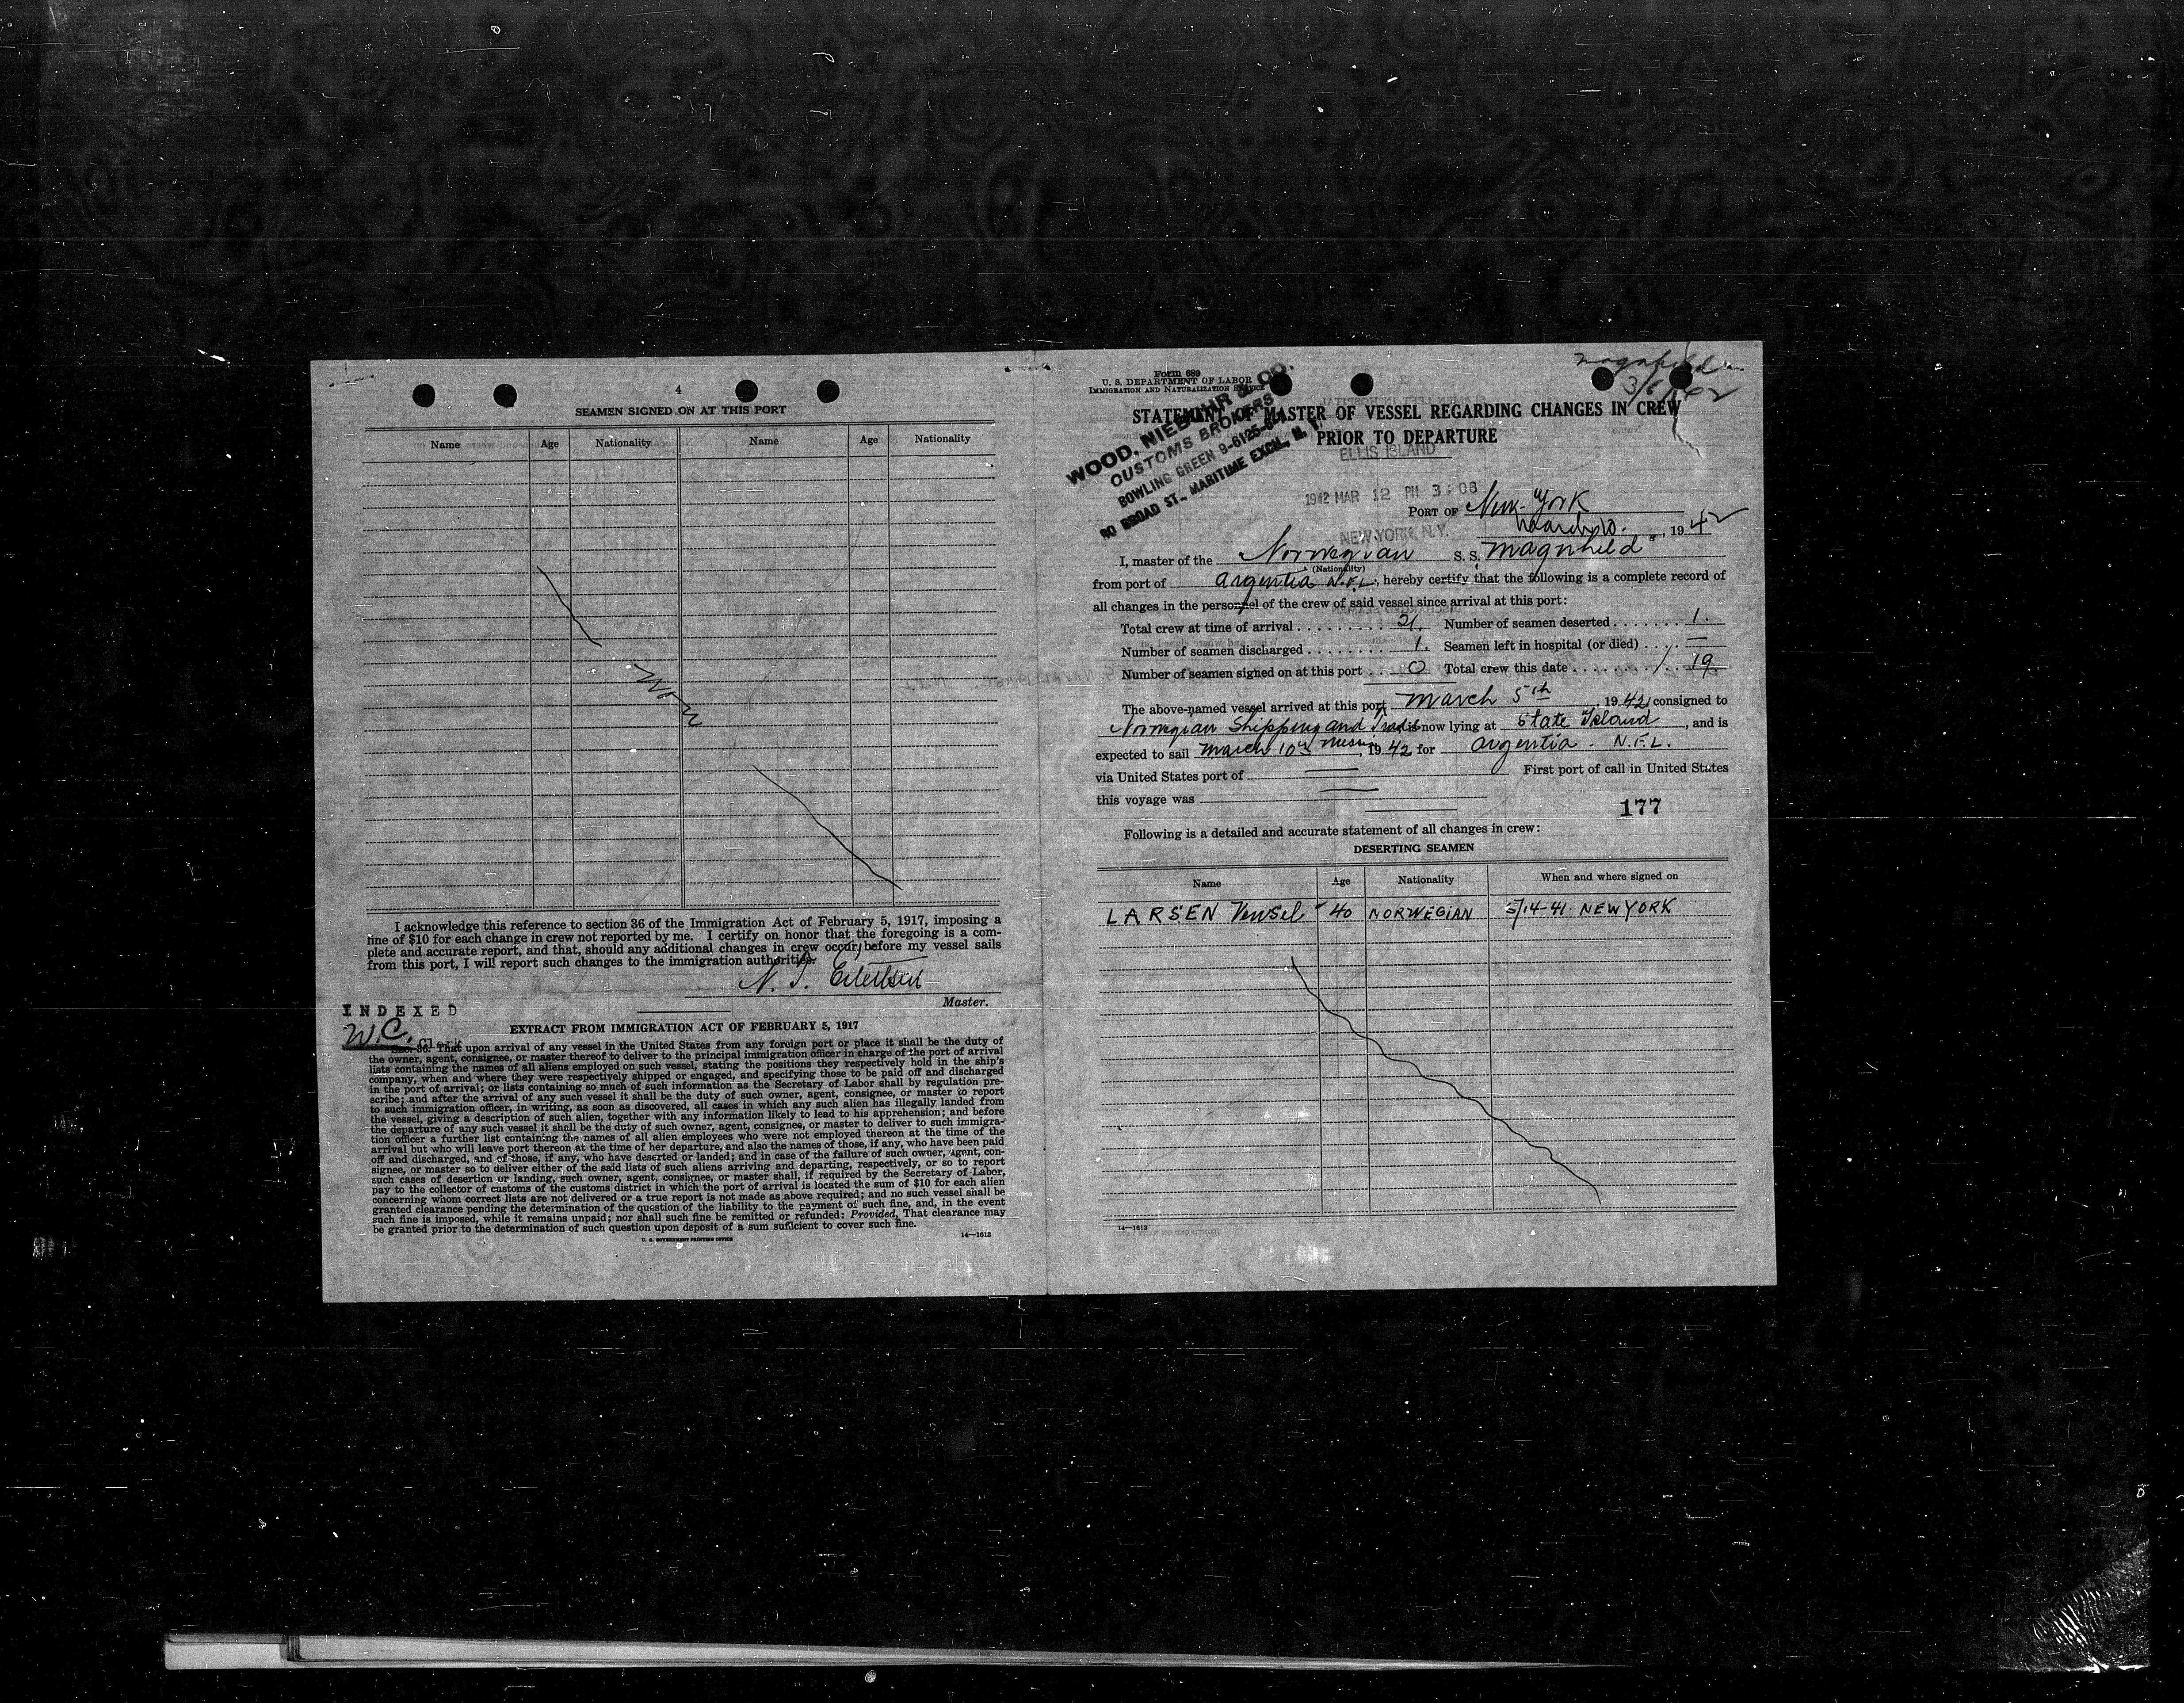 4
SEAMEN SIGNED ON AT THIS PORT
Name Age Nationality Name Age Nationality
I acknowledge this reference to section 36 of the Immigration Act of February 5, 1917, imposing a
fine of $10 for each change in crew not reported by me. I certify on honor that the foregoing is a com-
plete and accurate report, and that, should any additional changes in crew occur, before my vessel sails
from this port, I will report such changes to the immigration authorities.
Master.
INDEXED
W.C. Clerk
EXTRACT FROM IMMIGRATION ACT OF FEBRUARY 5, 1917
SEC. 36. That upon arrival of any vessel in the United States from any foreign port or place it shall be the duty of
the owner, agent, consignee, or master thereof to deliver to the principal immigration officer in charge of the port of arrival
lists containing the names of all aliens employed on such vessel, stating the positions they respectively hold in the ship's
company, when and where they were respectively shipped or engaged, and specifying those to be paid off and discharged
in the port of arrival; or lists containing so much of such information as the Secretary of Labor shall by regulation pre-
scribe; and after the arrival of any such vessel it shall be the duty of such owner, agent, consignee, or master to report
to such immigration officer, in writing, as soon as discovered, all cases in which any such alien has illegally landed from
the vessel, giving a description of such alien, together with any information likely to lead to his apprehension; and before
the departure of any such vessel it shall be the duty of such owner, agent, consignee, or master to deliver to such immigra-
tion officer a further list containing the names of all alien employees who were not employed thereon at the time of the
arrival but who will leave port thereon at the time of her departure, and also the names of those, if any, who have been paid
off and discharged, and of those, if any, who have deserted or landed; and in case of the failure of such owner, agent, con-
signee, or master so to deliver either of the said lists of such aliens arriving and departing, respectively, or so to report
such cases of desertion or landing, such owner, agent, consignee, or master shall, if required by the Secretary of Labor,
pay to the collector of customs of the customs district in which the port of arrival is located the sum of $10 for each alien
concerning whom correct lists are not delivered or a true report is not made as above required; and no such vessel shall be
granted clearance pending the determination of the question of the liability to the payment of such fine, and, in the event
such fine is imposed, while it remains unpaid; nor shall such fine be remitted or refunded: Provided, That clearance may
be granted prior to the determination of such question upon deposit of a sum sufficient to cover such fine.
U. S. GOVERNMENT PRINTING OFFICE 14—1613
Form 689
U. S. DEPARTMENT OF LABOR
IMMIGRATION AND NATURALIZATION SERVICE
STATEMENT OF MASTER OF VESSEL REGARDING CHANGES IN CREW
PRIOR TO DEPARTURE
WOOD, NIEBUHR & CO.
CUSTOMS BROKERS
BOWLING GREEN 9-6125-6
80 BROAD ST., MARITIME EXCH., N. Y.
ELLIS ISLAND
1942 MAR 12 PM 3:08
NEW YORK, N.Y.
PORT OF New-York
March 10., 1942
I, master of the Norwegian S. S. "Magnhild"
(Nationality)
from port of Argentia N.F.L., hereby certify that the following is a complete record of
all changes in the personnel of the crew of said vessel since arrival at this port:
Total crew at time of arrival 21. Number of seamen deserted 1.
Number of seamen discharged 1. Seamen left in hospital (or died) —
Number of seamen signed on at this port 0 Total crew this date 19.
The above-named vessel arrived at this port March 5th, 1942, consigned to
Norwegian Shipping and Trade is now lying at State Island, and is
expected to sail March 10th 1942 for Argentia. N.F.L.
via United States port of — First port of call in United States
this voyage was —
177
Following is a detailed and accurate statement of all changes in crew:
DESERTING SEAMEN
Name Age Nationality When and where signed on
LARSEN 40 NORWEGIAN 5/14-41 NEW YORK
14—1613